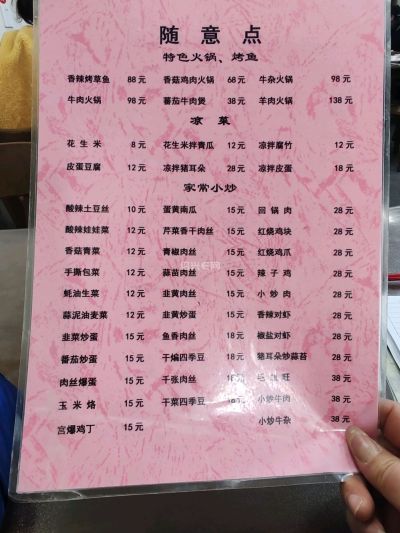 随意点
特色火锅、烤鱼
香辣烤草鱼 88元 香菇鸡肉火锅 68元 牛杂火锅 98元
牛肉火锅 98元 蕃茄牛肉煲 38元 羊肉火锅 138元
凉菜
花生米 8元 花生米拌青瓜 12元 凉拌腐竹 12元
皮蛋豆腐 12元 凉拌猪耳朵 28元 凉拌皮蛋 18元
家常小炒
酸辣土豆丝 10元 蛋黄南瓜 15元 回锅肉 28元
酸辣娃娃菜 12元 芹菜香干肉丝 15元 红烧鸡块 28元
香菇青菜 12元 青椒肉丝 15元 红烧鸡爪 28元
手撕包菜 12元 蒜苗肉丝 15元 辣子鸡 28元
蚝油生菜 12元 韭黄肉丝 15元 小炒肉 28元
蒜泥油麦菜 12元 韭黄炒蛋 15元 香辣对虾 28元
韭菜炒蛋 15元 鱼香肉丝 18元 椒盐对虾 28元
蕃茄炒蛋 15元 干煸四季豆 18元 猪耳朵炒蒜苔 28元
肉丝爆蛋 15元 千张肉丝 18元 毛血旺 38元
玉米烙 15元 干菜四季豆 元 小炒牛肉 38元
宫爆鸡丁 15元 小炒牛杂 38元